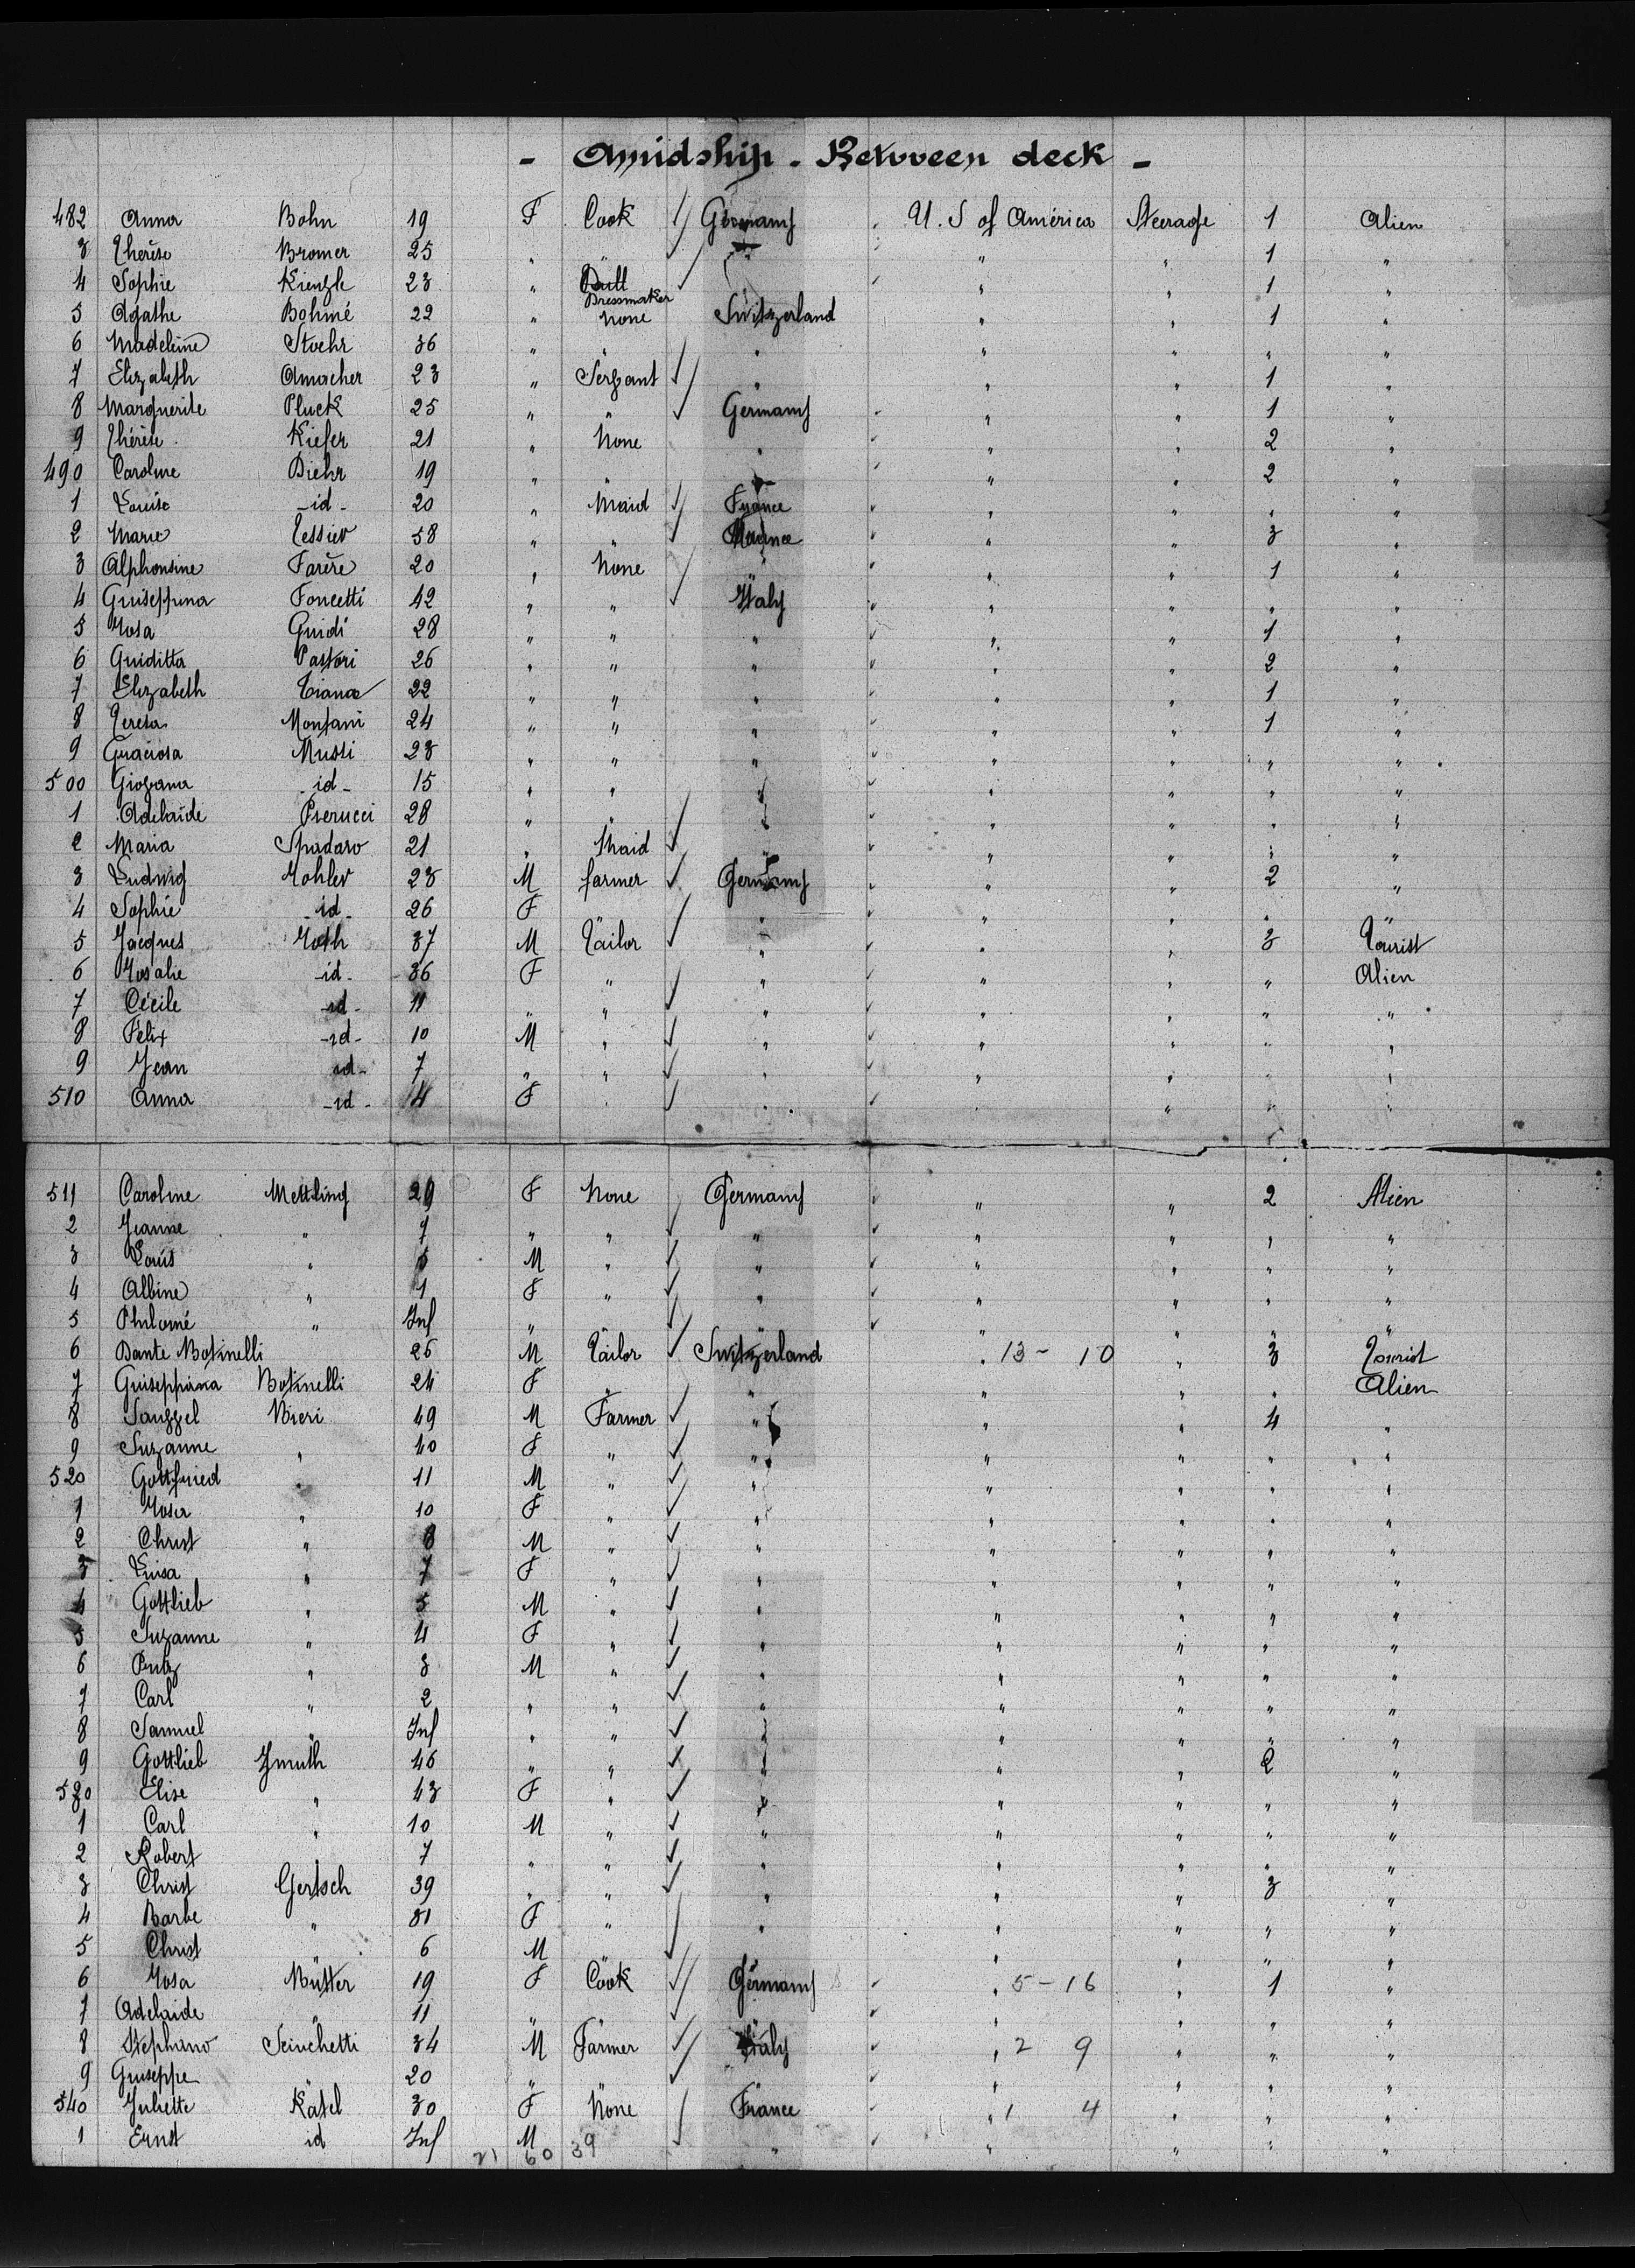 - Amidship - Between deck -
482 Anna Bohn 19 F Cook Germany U. S of América Steerage 1 Alien
3 Thérèse Bromer 25 " " " " " 1 "
4 Sophie Kienzle 23 " Dressmaker " " 1 "
5 Agathe Bohmé 22 " None Switzerland " " 1 "
6 Madeleine Stoehr 36 " " " " " " "
7 Elizabeth Amacher 23 " Servant " " " 1 "
8 Marguerite Pluck 25 " " Germany " " 1 "
9 Thérèse Kiefer 21 " None " " " 2 "
490 Caroline Diehr 19 " " " " " 2 "
1 Louise -id- 20 " Maid France " " " "
2 Marie Tessier 58 " " " " 3 "
3 Alphonsine Farère 20 " None " " " 1 "
4 Guiseppina Foncetti 42 " " Italy " " " "
5 Rosa Guidi 28 " " " " " 1 "
6 Guiditta Pastori 26 " " " " " 2 "
7 Elizabeth Ciana 22 " " " " " 1 "
8 Teresa Montani 24 " " " " " 1 "
9 Graciosa Mussi 23 " " " " " " "
500 Giovana -id- 15 " " " " " " "
1 Adelaïde Pierucci 28 " " " " " " "
2 Maria Spadaro 21 " Maid " " " " "
3 Ludwig Kohler 23 M farmer Germany " " 2 "
4 Sophie -id- 26 F " " " " " "
5 Jacques Roth 37 M Tailor " " " 3 Tourist
6 Rosalie -id- 36 F " " " " " Alien
7 Cécile -id- 11 " " " " " " "
8 Félix -id- 10 M " " " " " "
9 Jean -id- 7 " " " " " " "
510 Anna -id- 4 F " " " " "
511 Caroline Mettling 29 F None Germany " " 2 Alien
2 Jeanne " 7 " " " " " " "
3 Louis " M " " " " " "
4 Albine " 1 F " " " " " "
5 Philomé " Inf " " " " " " "
6 Dante Botinelli 26 M Tailor Switzerland " 13 - 10 " 3 Tourist
7 Guiseppina Botinelli 24 F " " " " " Alien
8 Bieri 49 M Farmer " " " 4 "
9 Suzanne " 40 F " " " " " "
520 Gottfried " 11 M " " " " " "
1 Rosa " 10 F " " " " " "
2 Christ " 8 M " " " " " "
3 Luisa " 7 F " " " " " "
4 Gottlieb " 5 M " " " " " "
5 Suzanne " 4 F " " " " " "
6 " 3 M " " " " " "
7 Carl " 2 " " " " " " "
8 Samuel " Inf " " " " " " "
9 Gottlieb Zmuth 46 " " " " " 2 "
530 Elise " 43 F " " " " " "
1 Carl " 10 M " " " " " "
2 Robert " 7 " " " " " " "
3 Christ Gertsch 39 " " " " " 3 "
4 Barbe " 31 F " " " " " "
5 Christ " 6 M " " " " " "
6 Rosa Mütter 19 F Cook Germany " 5 - 16 " 1 "
7 Adelaide " 11 " " " " " " "
8 Stephano Scinchetti 34 M Farmer Italy " 2 9 " " "
9 Guiseppe " 20 " " " " " " "
540 Juliette Katel 30 F None France " 1 4 " " "
1 Ernst id Inf M " " " " "
21 60 39